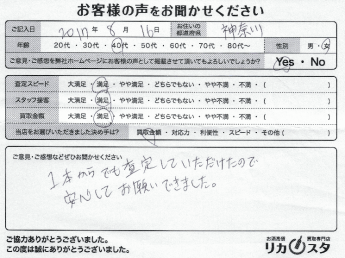 お客様の声をお聞かせください
ご記入日 2017年 8月 16日 お住いの都道府県 神奈川
年齢 20代・30代・40代・50代・60代・70代・80代〜 性別 男・女
ご意見・ご感想を弊社ホームページにお客様の声として掲載させて頂いてもよろしいでしょうか? Yes・No
査定スピード 大満足・満足・やや満足・どちらでもない・やや不満・不満・( )
スタッフ接客 大満足・満足・やや満足・どちらでもない・やや不満・不満・( )
買取金額 大満足・満足・やや満足・どちらでもない・やや不満・不満・( )
当店をお選びいただきました決め手は? 買取金額・対応力・利便性・スピード・その他( )
ご意見・ご感想などぜひお聞かせください
1本からでも査定していただけたので
安心してお願いできました。
ご協力ありがとうございました。
この度は誠にありがとうございました。
お酒高価買取専門店
リカスタ